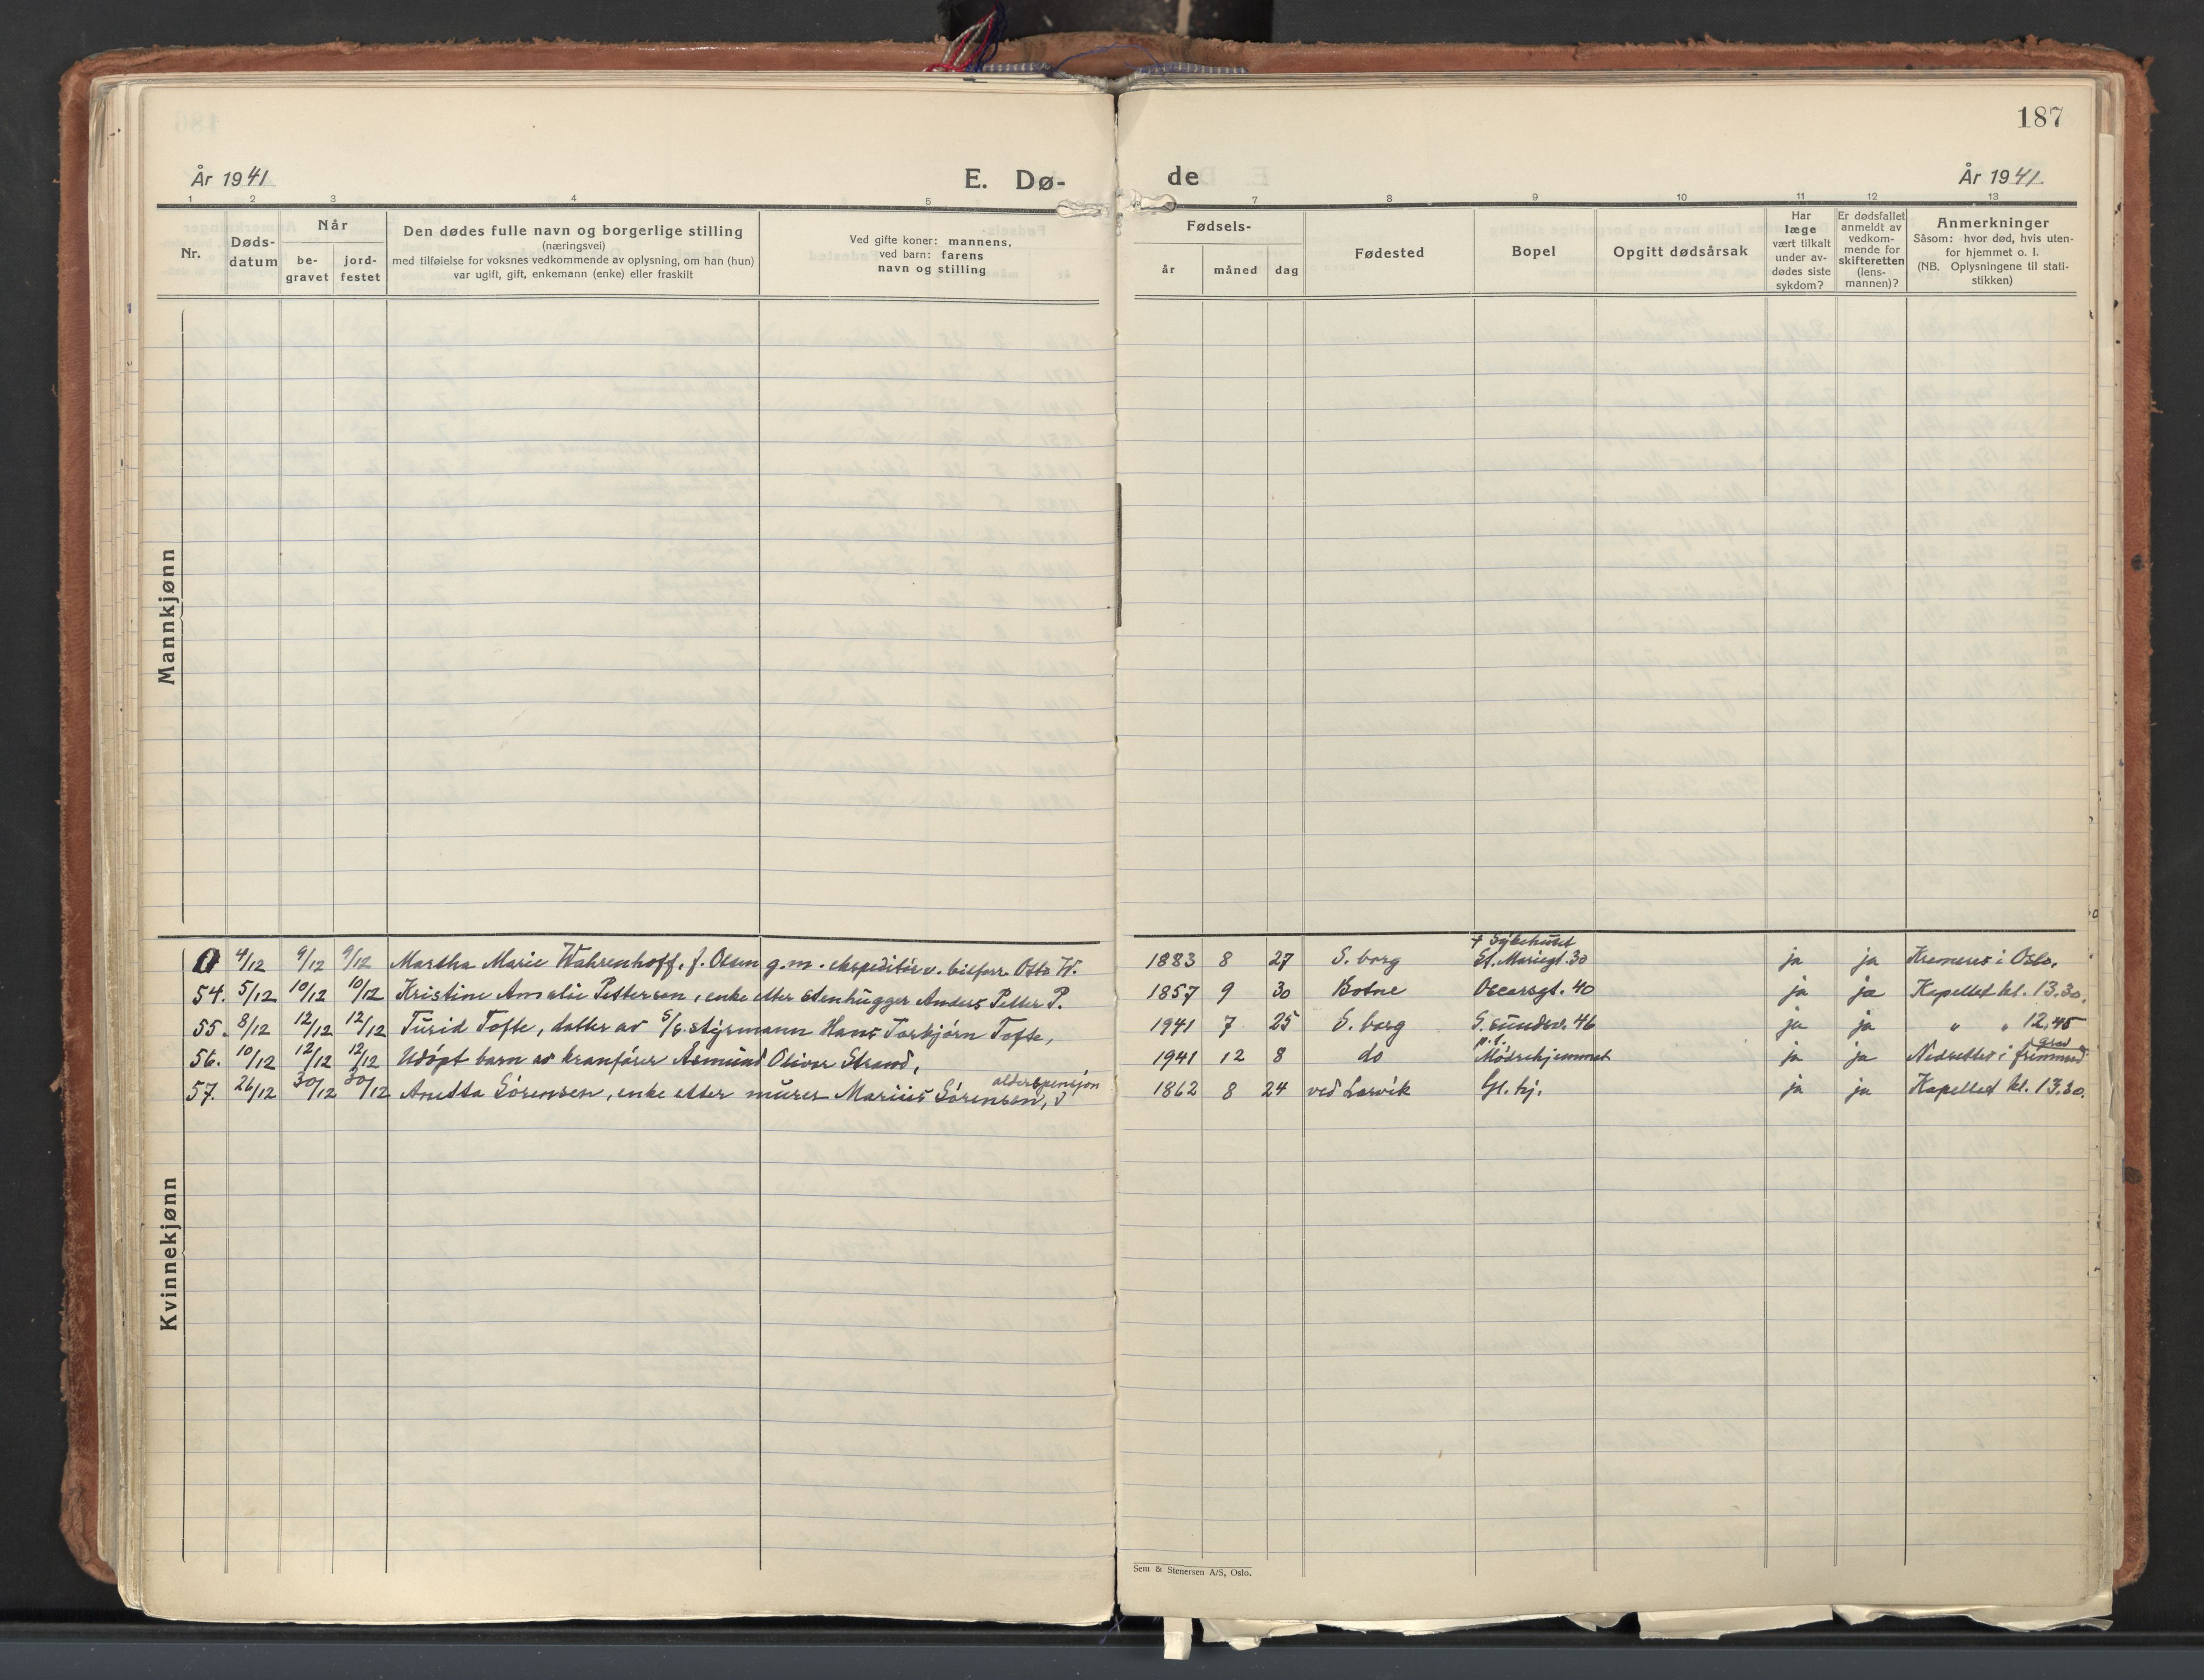 187
År 1941
E. Dø-
de
År 1941
1 2 3 4 5 7 8 9 10 11 12 13
Nr.
Døds-
datum
Når
be-
gravet
jord-
festet
Den dødes fulle navn og borgerlige stilling
(næringsvei)
med tilføielse for voksnes vedkommende av oplysning, om han (hun)
var ugift, gift, enkemann (enke) eller fraskilt
Ved gifte koner: mannens,
ved barn: farens
navn og stilling
Fødsels-
år måned dag
Fødested
Bopel
Opgitt dødsårsak
Har
læge
vært tilkalt
under av-
dødes siste
sykdom?
Er dødsfallet
anmeldt av
vedkom-
mende for
skifteretten
(lens-
mannen)?
Anmerkninger
Såsom: hvor død, hvis uten-
for hjemmet o. l.
(NB. Oplysningene til stati-
stikken)
Mannkjønn
Kvinnekjønn
0 4/12 9/12 9/12 Martha Marie Wahrenhoff, f. Olsen g.m. ekspeditör v. bilforr. Otto W. 1883 8 27 S.borg + Sykehuset St. Mariegt. 30 ja ja Kremeres i Oslo.
54. 5/12 10/12 10/12 Kristine Amalie Pettersen, enke etter stenhugger Anders Petter P. 1857 9 30 Botne Oscarsgt. 40 ja ja Kapellet kl. 13.30.
55. 8/12 12/12 12/12 Turid Tofte, datter av S/S. styrmann Hans Torbjörn Tofte, 1941 7 25 S.borg G. sundsv. 46 ja ja " " 12,45
56. 10/12 12/12 12/12 Udöpt barn av kranförer Asmund Oliver Strand, 1941 12 8 do p.t. Mödrehjemmet ja ja Nedsettes i fremmed grav
57. 26/12 30/12 30/12 Anetta Sörensen, enke etter murer Marius Sörensen, alderspensjon 1862 8 24 ved Larvik Gl. hj. ja ja Kapellet kl. 13.30.
Sem & Stenersen A/S, Oslo.